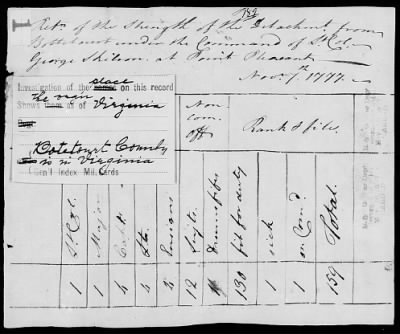 Retn of the Strength of the Detachment from
Bottetourt under the Command of Lt. Col.
George Skilson at Point Pleasant
Novr 7th 1777
place
Investigation of the on this record
the men
Shows them as of Virginia
Botetourt County
is in Virginia
Gen'l Index Mil. Cards
Non
com.
off
Rank & file.
Lt. Col.
Major
Capts
Lts.
Ensions
Sergts.
Drums & fifes
fit for duty
sick
on Com'd
Total.
1 1 4 4 12 130 1 1 139